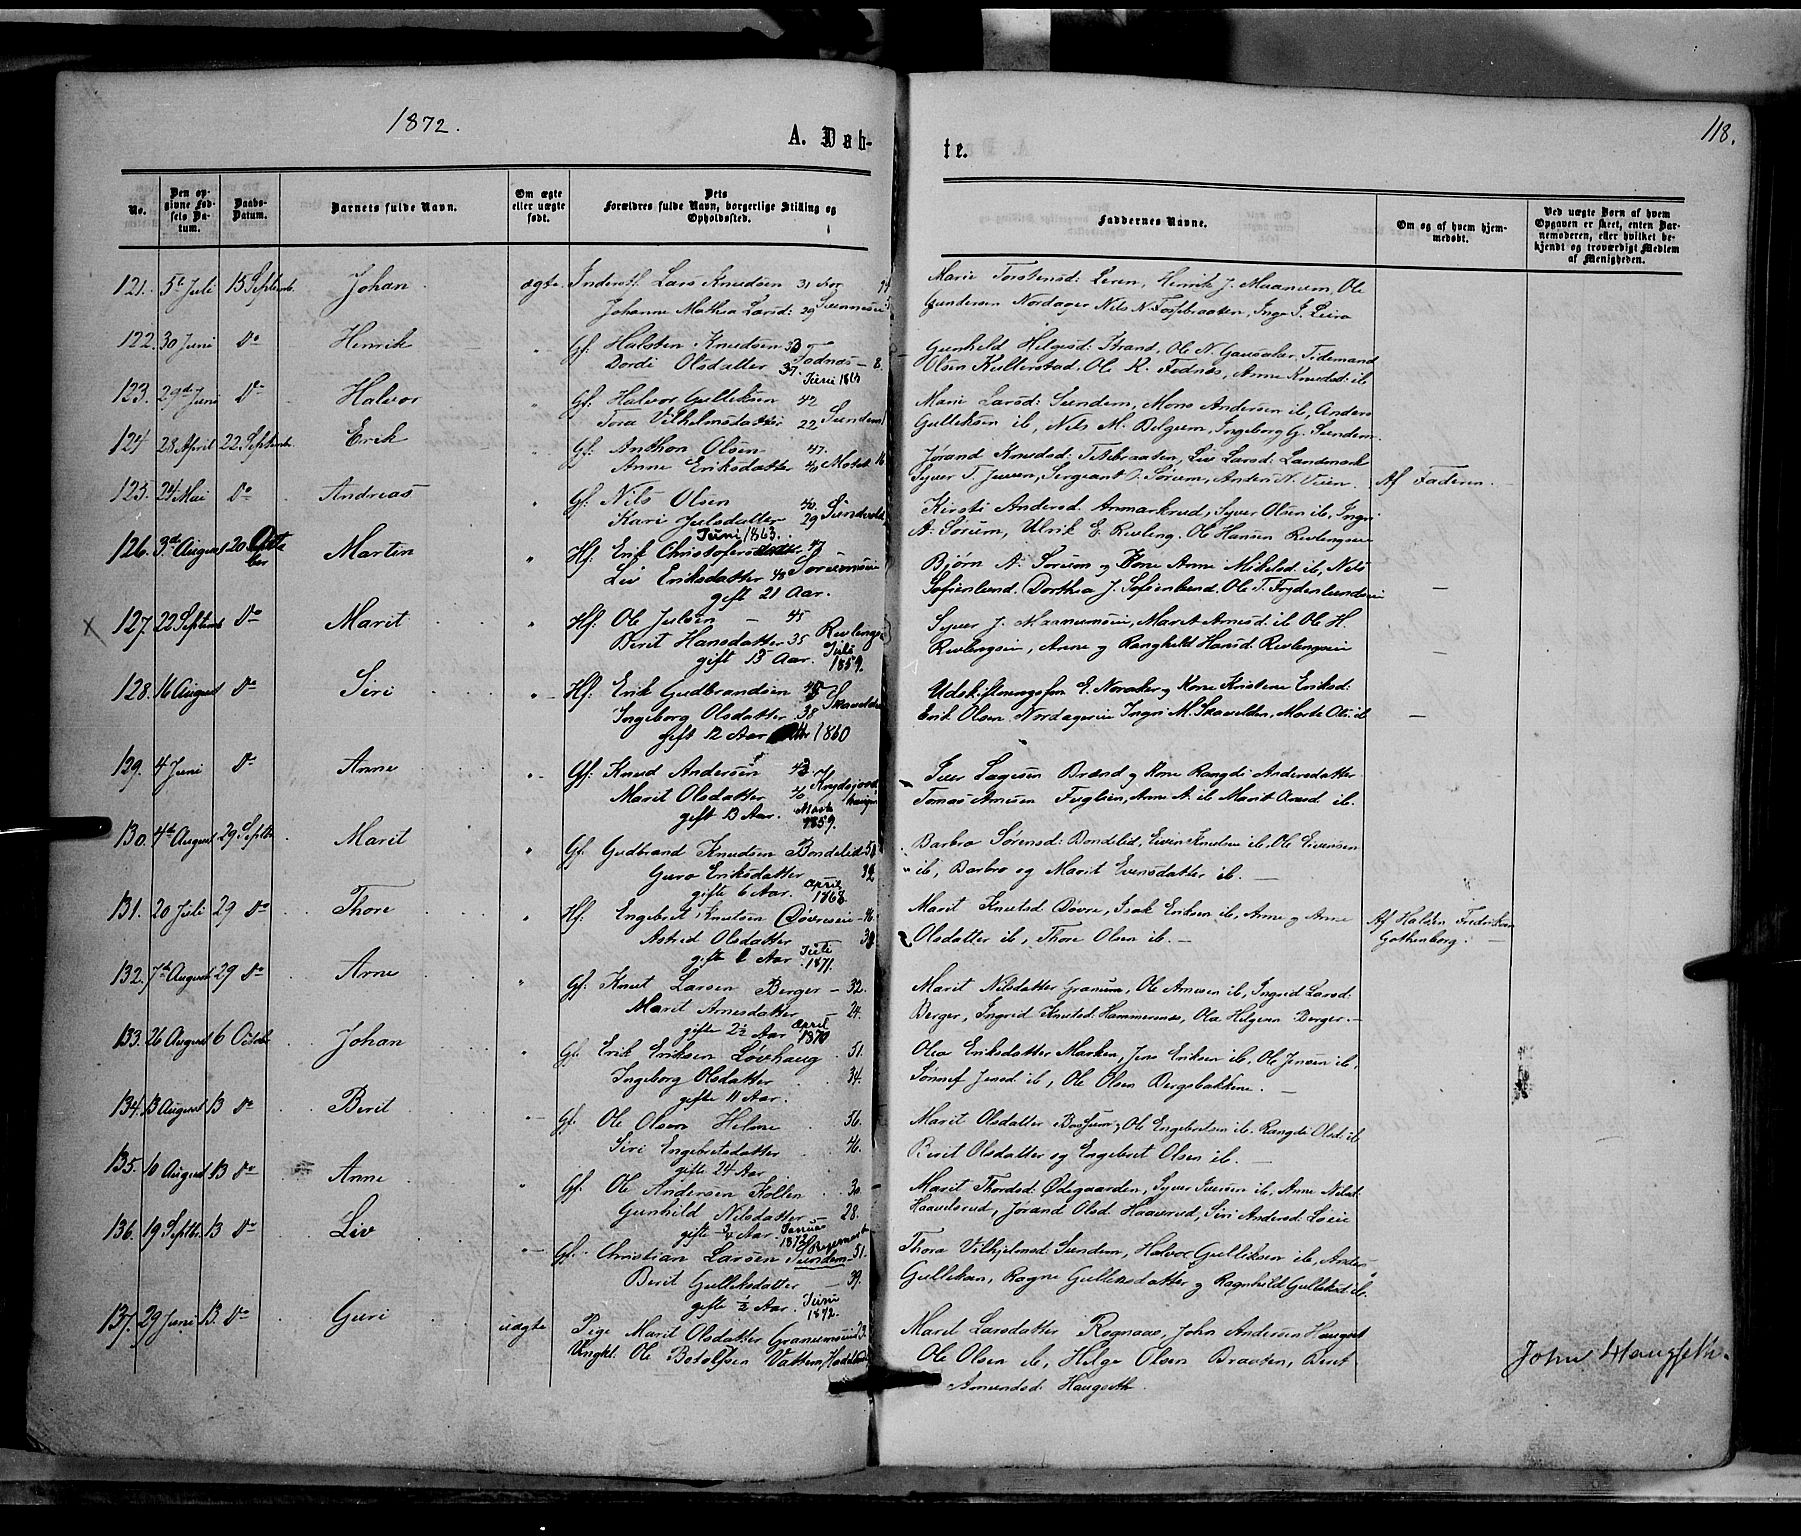 1872.
118.
A. Døb-
te.
No.
Den op-
givne Fød-
sels Da-
tum.
Daabs-
Datum.
Barnets fulde Navn.
Om ægte
eller uægte
født.
Dets
Forældres fulde Navn, borgerlige Stilling og
Opholdssted.
Faddernes Navne.
Om og af hvem hjem-
medøbt.
Ved uægte Børn af hvem
Opgaven er skeet, enten Bar-
nemoderen, eller hvilket be-
kjendt og troværdigt Medlem
af Menigheden.
121. 5te Juli 15 Septemb. Johan ægte Inderst Lars Knudsen 31
Johanne Mathea Larsd: 29
Marie Torstensd: Leren, Henrik J. Maanum, Ole
Gundersen Nordager Nils N. Fossebraaten, Inge S. Leira
122. 30 Juni Do Henrik " Gf: Halsten Knudsen 33
Dordi Olsdatter 37. Fodnæs 8.
Gunhild Helgesd: Strand, Ole N. Gausaker, Tidemand
Olsen Kulterstad, Ole K. Fodnæs, Anne Knudsd: ib
123. 29de Juni Do Halvor " Gf: Halvor Gulliksen 42
Tora Vilhelmsdatter 22 Sundem
Marie Larsd: Sundem, Mons Andersen ib, Anders
Gulleksen ib, Nils M. Belgum, Ingeborg G. Sundem.
124 28 April 22 Septemb Erik " Gf: Anthon Olsen 47.
Anne Eriksdatter 40
Jørand Knudsd: Litebraaten, Liv Larsd: Landmark
Syver T. Juven, Sergeant O. Sørum, Anders N. Veien.
125. 24 Mai Do Andreas " Gf: Nils Olsen 40.
Kari Julsdatter 29 Sundvold
Juni 1863.
Kirsti Andersd. Anmarkrud, Syver Olsen ib, Ingri
A. Sørum, Ulrik E. Revling. Ole Hansen Revlingseie
Af Faderen.
126. 3die August 20 Octo
ber Martin " Hf: Erik Christofersen 47
Liv Eriksdatter 43 Sorumseie
gift 21 Aar.
Bjørn A. Sørum og Kone Anne Mikelsd ib, Nils
Sofienlund. Dorthea J. Sofienlund, Ole T. Frydenlundseie
127. 22 Septemb Do Marit " Hf: Ole Julsen 45
Berit Hansdatter 35 Revlingseie
gift 13 Aar. Juli
1859.
Syver J. Maanumseie, Marit Arnesd ib, Ole H.
Revlingseie, Anne og Rangheld Hansd. Revlingseie
128. 16 August Do Siri " Hf: Erik Gudbrandsen 48
Ingeborg Olsdatter 38
gift 12 Aar 1860
Udskiftningsform E. Noraker og Kone Kristine Eriksd:
Erik Olsen Nordagereie Ingri M. Skavelden, Marte Ols. ib
129. 4 Juni Do Anne " Gf: Knud Andersen 43
Marit Olsdatter 40
gift 13 Aar. Marts
1859.
Iver Sagesen Brænd og Kone Rangdi Andersdatter
Tomas Arnesen Fuglien, Arne A. ib Marit Arnesd ib.
130. 4de August 29 Septbr Marit " Gf: Gudbrand Knudsen Bondelid
Guro Eriksdatter
gifte 6 Aar. April
Barbro Sørensd: Bondelid, Eiven Knudsen ib, Ole Eivensen
ib, Barbro og Marit Evensdatter ib.
131. 20 Juli 29 Do Thore " Hf: Engebret Knutsen Døvreeie 46.
Astrid Olsdatter
gifte 1 Aar Juli
1871.
Marit Knutsd Døvre, Isak Eriksen ib, Arne og Anne
Olsdatter ib, Thore Olsen ib.
Gothenborg.
132. 7de August 29 Do Arne " Gf: Knut Larsen Berger 32.
Marit Arnesdatter 24.
gifte 2½ Aar April
1870
Marit Nilsdatter Granum, Ole Arnesen ib, Ingrid Larsd:
Berger, Ingrid Knutsd: Hammerenes, Ole Helgesen Berger.
133. 26 August 6 Octob Johan " Gf: Erik Eriksen Løvhaug 51.
Ingeborg Olsdatter 34.
gifte 11 Aar.
Olea Eriksdatter Marken, Jens Eriksen ib, Ole Jensen ib,
Sønnef Jensd ib, Ole Olsen Bergsbakkene.
134. 13 August 13 Do Berit " Gf. Ole Olsen Helme 56.
Siri Engebretsdatter 46.
gifte 24 Aar
Marit Olsdatter Ole Engebretsen ib. Rangdi Olsd: ib
Berit Olsdatter og Engebret Olsen ib.
135. 10 August 13 Do Anne " Gf. Ole Andersen Kolten 30.
Gunhild Nilsdatter 28.
gifte ¾ Aar. Januar
1872
Marit Thordsd: Ødegaarden, Syver Iversen ib, Anne Nilsd:
Haavelsrud, Jorand Olsd. Haavrud, Siri Andersd:
136. 19 Septbr. 13 Do Liv " Gf. Christian Larsen Sundem 51.
Berit Gulleksdatter 39.
gifte ½ Aar. Juni
1872.
Thora Vilhjelmsd: Sundem, Halvor Gulleksen ib, Anders
Gulleksen, Ragne Gulleksdatter og Ragnhild Gulleksd ib.
137. 29 Juni 13. Do Guri uægte Pige Marit Olsdatter Granumseie 23.
Ungkl. Ole Botolfsen Vattem,
Marit Larsdatter Rognaas, John Andersen Haugset
Ole Olsen ib, Helge Olsen Braaten, Berit
Amundsd: Haugseth.
John Haugseth.